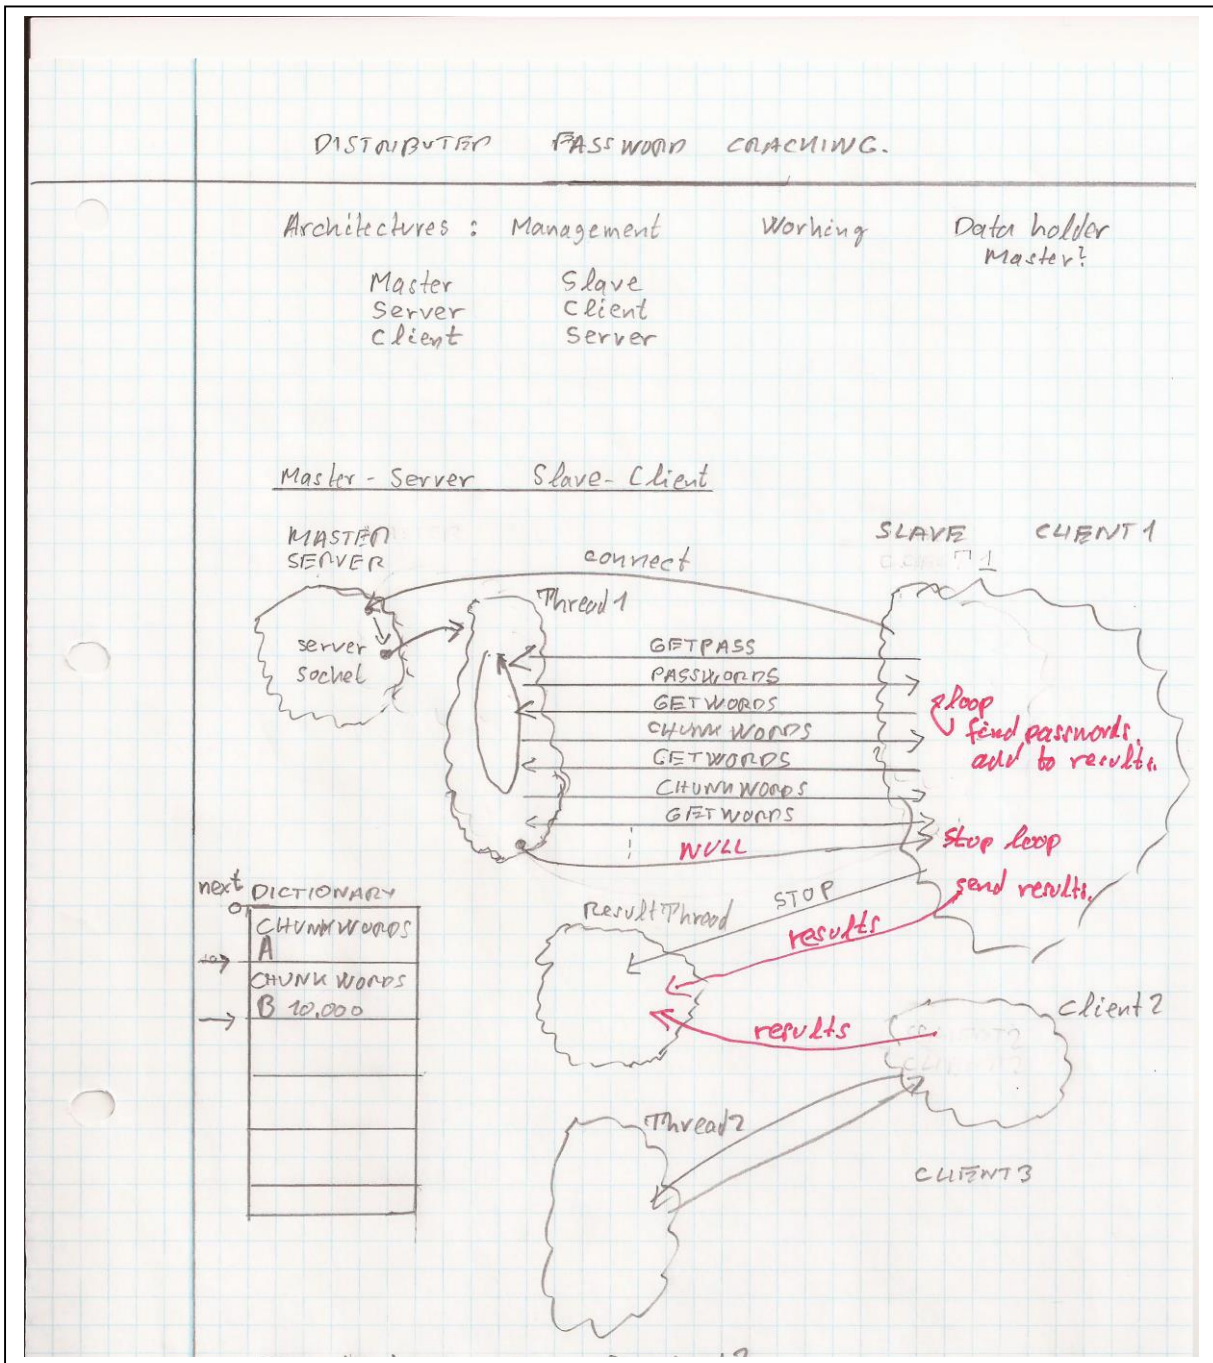 DISTRIBUTED PASSWORD CRACKING.
Architectures : Management Working Data holder
Master?
Master Slave
Server Client
Client Server
Master - Server Slave - Client
MASTER
SERVER
SLAVE CLIENT 1
connect
Thread 1
server
socket
GETPASS
PASSWORDS
GETWORDS
CHUNK WORDS
GETWORDS
CHUNKWORDS
GETWORDS
NULL
loop
find passwords.
add to results.
stop loop
send results.
STOP
results
Result Thread
next
DICTIONARY
0
CHUNKWORDS
A
CHUNK WORDS
B 10.000
results
Client 2
Thread 2
CLIENT 3